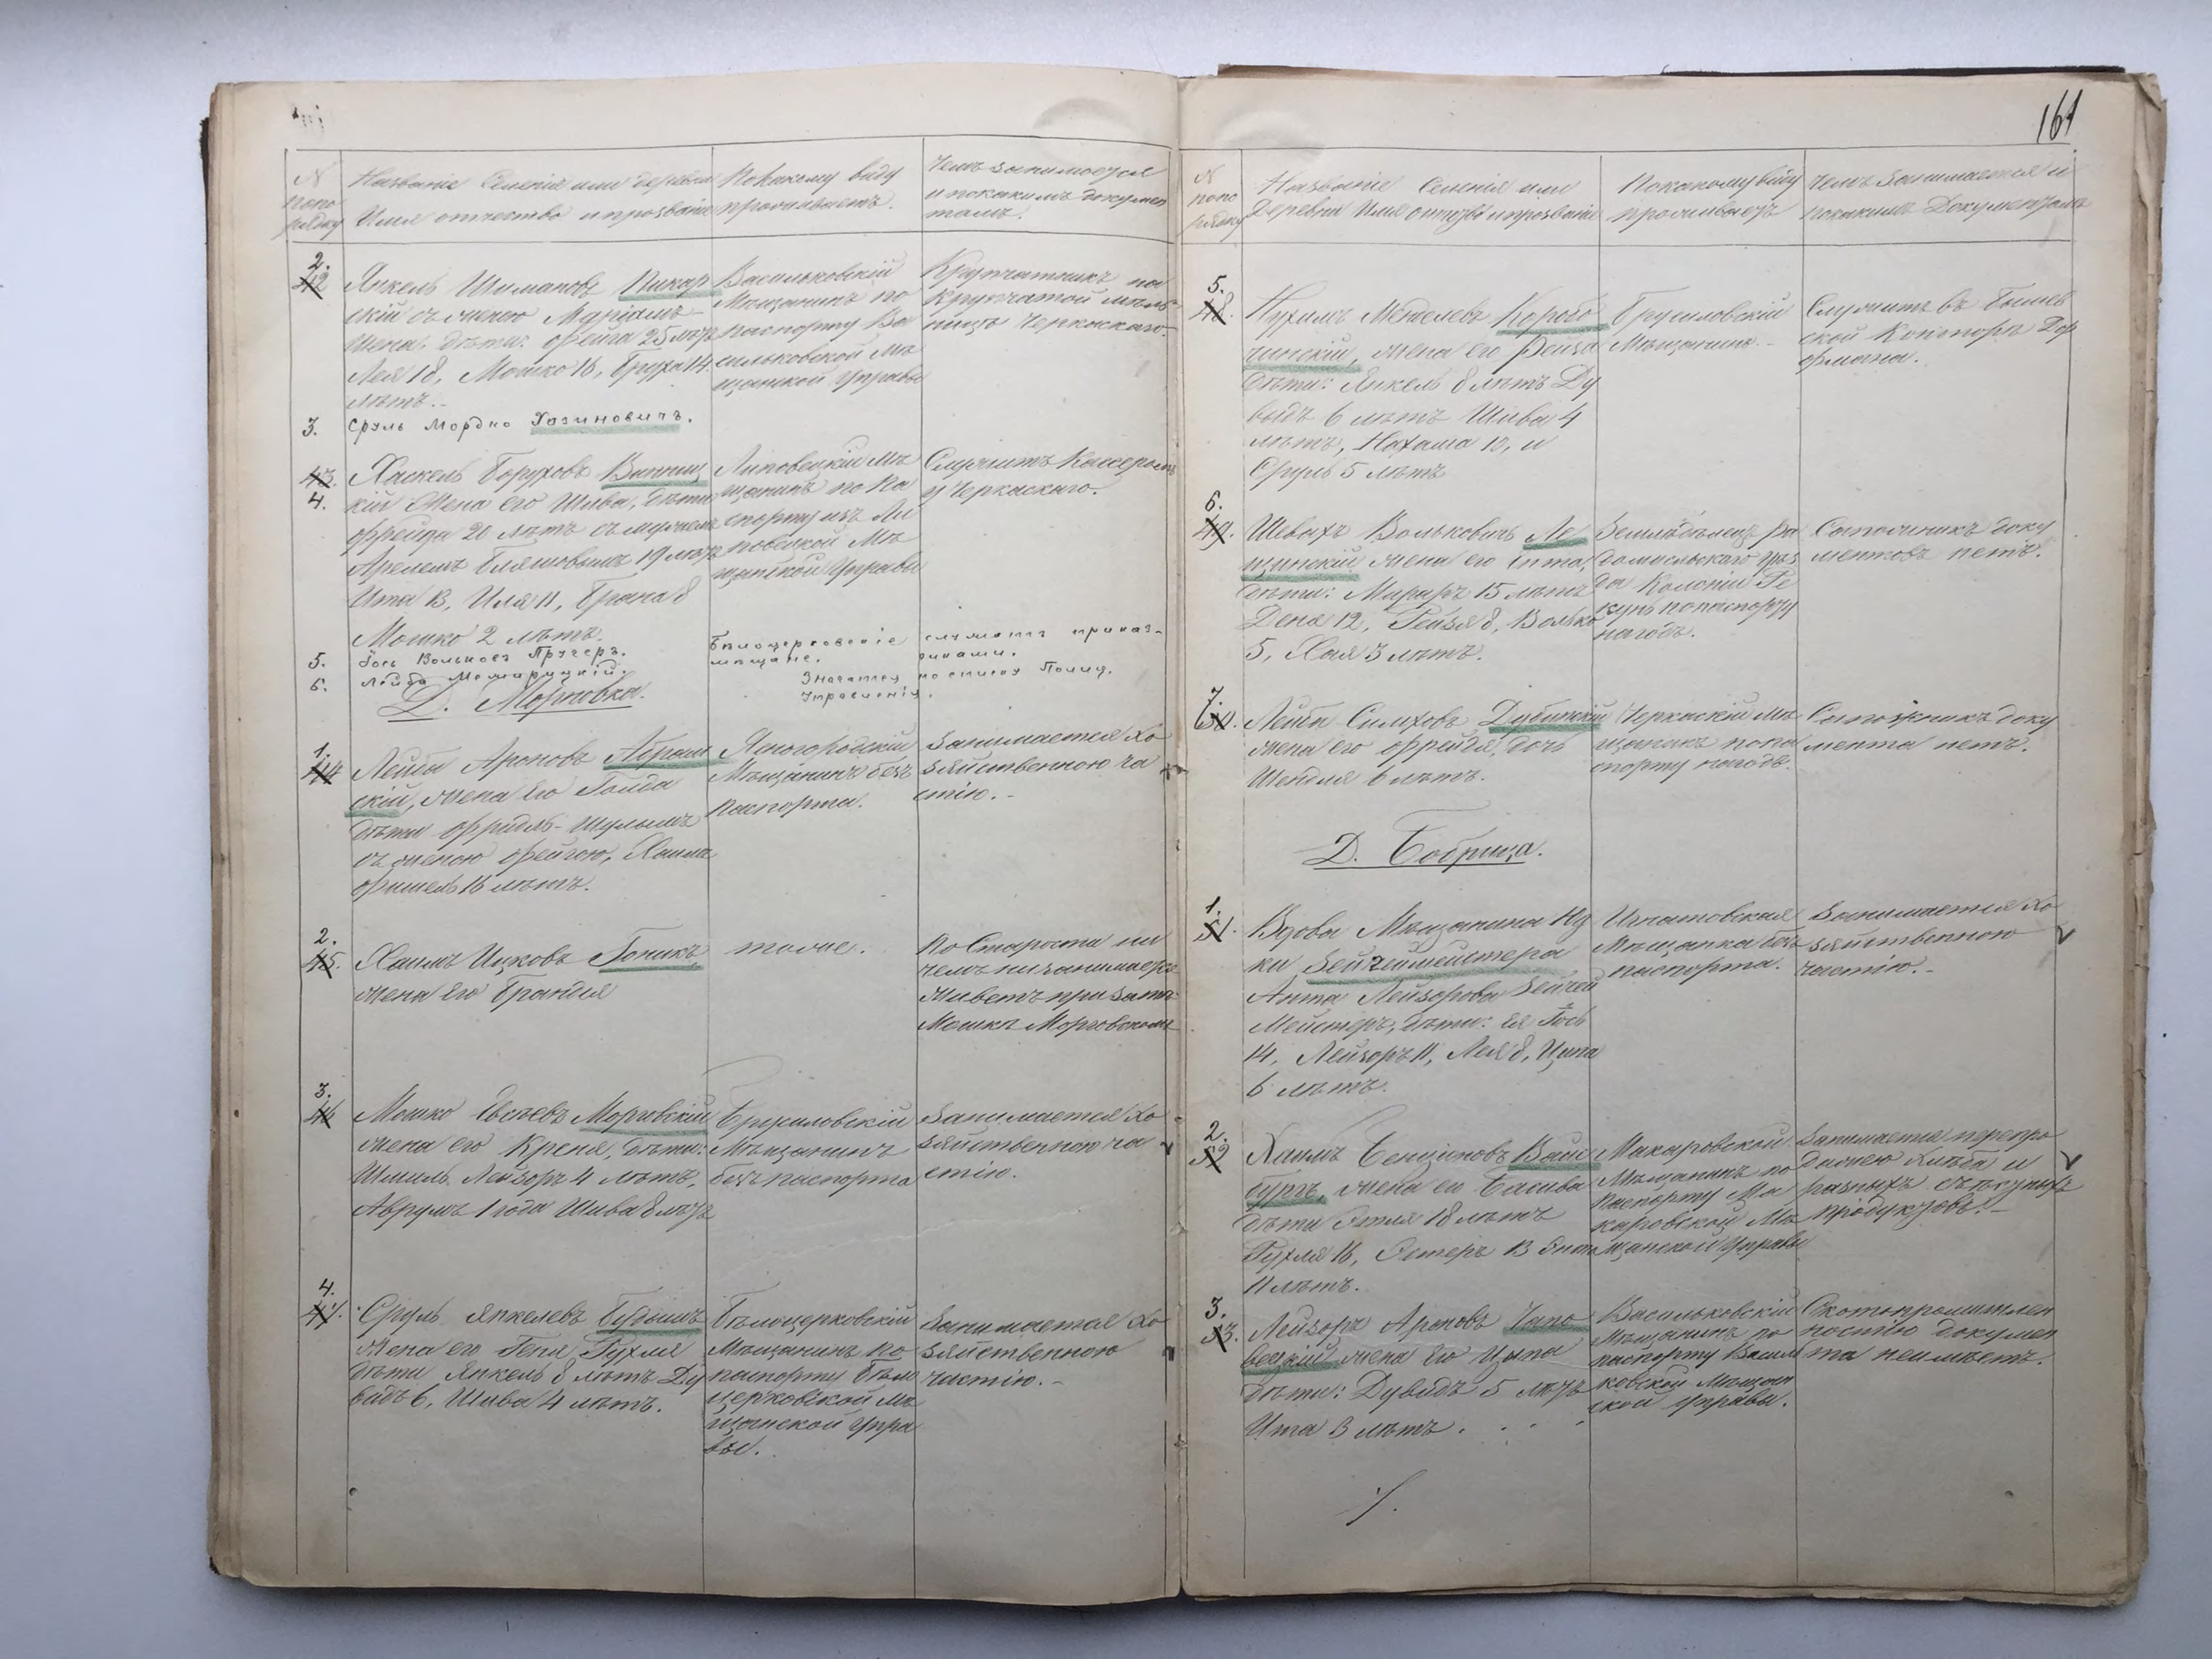 161
N попо рядку
Названіе Селенія или деревни
Имя отчество и прозваніе
По какому виду
проживаетъ.
Чемъ занимается
и по какимъ докумен
тамъ.
2.
42
Янкель Шимановъ Пикар
скій съ женою Маріамъ
дѣти: Фейга 25 лѣтъ
Лея 18, Мошко 16, Бруха 14
лѣтъ.
Васильковскій
Мѣщанинъ по
паспорту Ва
сильковской Мѣ
щанской Управы
Крупчатникъ на
Крупчатой мѣль
ницѣ Черкаскаго
3. Сруль Мордко Хазиновичъ.
43.
4.
Хаскель Боруховъ Винниц
кій Жена его Шива, дѣти
Фрейда 20 лѣтъ съ мужемъ
19 лѣтъ
Ита 13, Иля 11, Брана 8
Мошко 2 лѣтъ.
Липовецкій мѣ
щанинъ по па
спорту изъ Ли
повецкой Мѣ
щанской Управы
Служитъ Кассеромъ
у Черкаскаго.
5. Гось Вольковъ Пругеръ.
6. Лейба Можарицкій.
Бѣлоцерковскіе
мѣщане.
служатъ приказ-
чиками.
Значатся по списку Полиц.
Управленія.
Д. Моровка.
1.
44
Лейба Ароновъ Абрам
скій, жена его Голда
дѣти Фридль-Шулымъ
съ женою Фейгою, Хаимъ
Фишель 16 лѣтъ.
Ясногородскій
Мѣщанинъ безъ
паспорта.
Занимается Хо
зяйственною ча
стію.-
2.
45.
Хаимъ Ицковъ Гоникъ
жена его Брандля
тоже.
По Старости ни
чемъ ни занимаетъ
живетъ при зятѣ
Мошкѣ Моровскомъ
3.
46
Мошко Евсѣевъ Моровскій
жена его Креня, дѣти:
Шмиль Лейзоръ 4 лѣтъ,
Аврумъ 1 года Шива 8 лѣтъ
Брусиловскій
Мѣщанинъ
безъ паспорта
Занимается Хо
зяйственною ча
стію.
4.
47.
Сруль Янкелевъ Будышъ
Жена его Геня Рухля
дѣти Янкель 8 лѣтъ Ду
видъ 6, Шива 4 лѣтъ.
Бѣлоцерковскій
Мѣщанинъ по
паспорту Бѣло
церковской мѣ
щанской Упра
вы.
Занимается Хо
зяйственною
частію.-
N попо рядку
Названіе Селенія или
Деревни Имя отчество и прозваніе
По какому виду
проживаетъ
Чемъ занимается и
по какимъ Документамъ
5.
48.
Нухимъ Менделевъ Коробо
чинскій, жена его Рейза
дѣти: Янкель 8 лѣтъ Ду
выдъ 6 лѣтъ Шива 4
лѣтъ, Нахама 12, и
Сруль 5 лѣтъ
Брусиловскій
Мѣщанинъ.-
Служитъ въ Бышев
ской Конторѣ Дор
фмана.
6.
49.
Шевахъ Вольковичъ Ле
щинскій жена его Ента,
дѣти: 15 лѣтъ
Деня 12, Рейзя 8, Волько
5, Хая 3 лѣтъ.
Земледѣлецъ Ра
домысльскаго уѣз
да Колоніи Ре
кунь по паспорту
на годъ.
Сапожникъ доку
ментовъ нетъ.
7.
50.
Лейба Симховъ Дубинскій
жена его Фрейдя, дочь
Шендля 6 лѣтъ.
Черкаскій мѣ
щанинъ по па
спорту на годъ.
Сапожникъ доку
мента нетъ.
Д. Бобрица.
1.
51.
Вдова Мѣщанина Ну
ки Зейгеймейстера
Анта Лейзорова Зейгей
Мейстеръ, дѣти: ея Гось
14, Лейзоръ 11, Лея 8, Ципа
6 лѣтъ.
Игнатовская
Мѣщанка безъ
паспорта.
Занимается Хо
зяйственною
частію.-
2.
52
Хаимъ Бенціоновъ Вайс
бургъ, жена его Басива
дѣти Этля 18 лѣтъ
Рухля 16, Эстеръ 13 Ента
11 лѣтъ.
Макаровской
Мѣщанинъ по
паспорту Ма
каровской Мѣ
щанской Управы
Занимается перепро
дажею хлѣба и
разныхъ съѣстныхъ
продуктовъ.-
3.
53.
Лейзоръ Ароновъ Чапо
вецкій жена его Ципа
дѣти: Дувидъ 5 лѣтъ
Ита 3 лѣтъ.
Васильковскій
Мѣщанинъ по
паспорту Василь
ковской Мѣщан
ской управы.
Скотопромышлен
ностію докумен
та неимѣетъ.